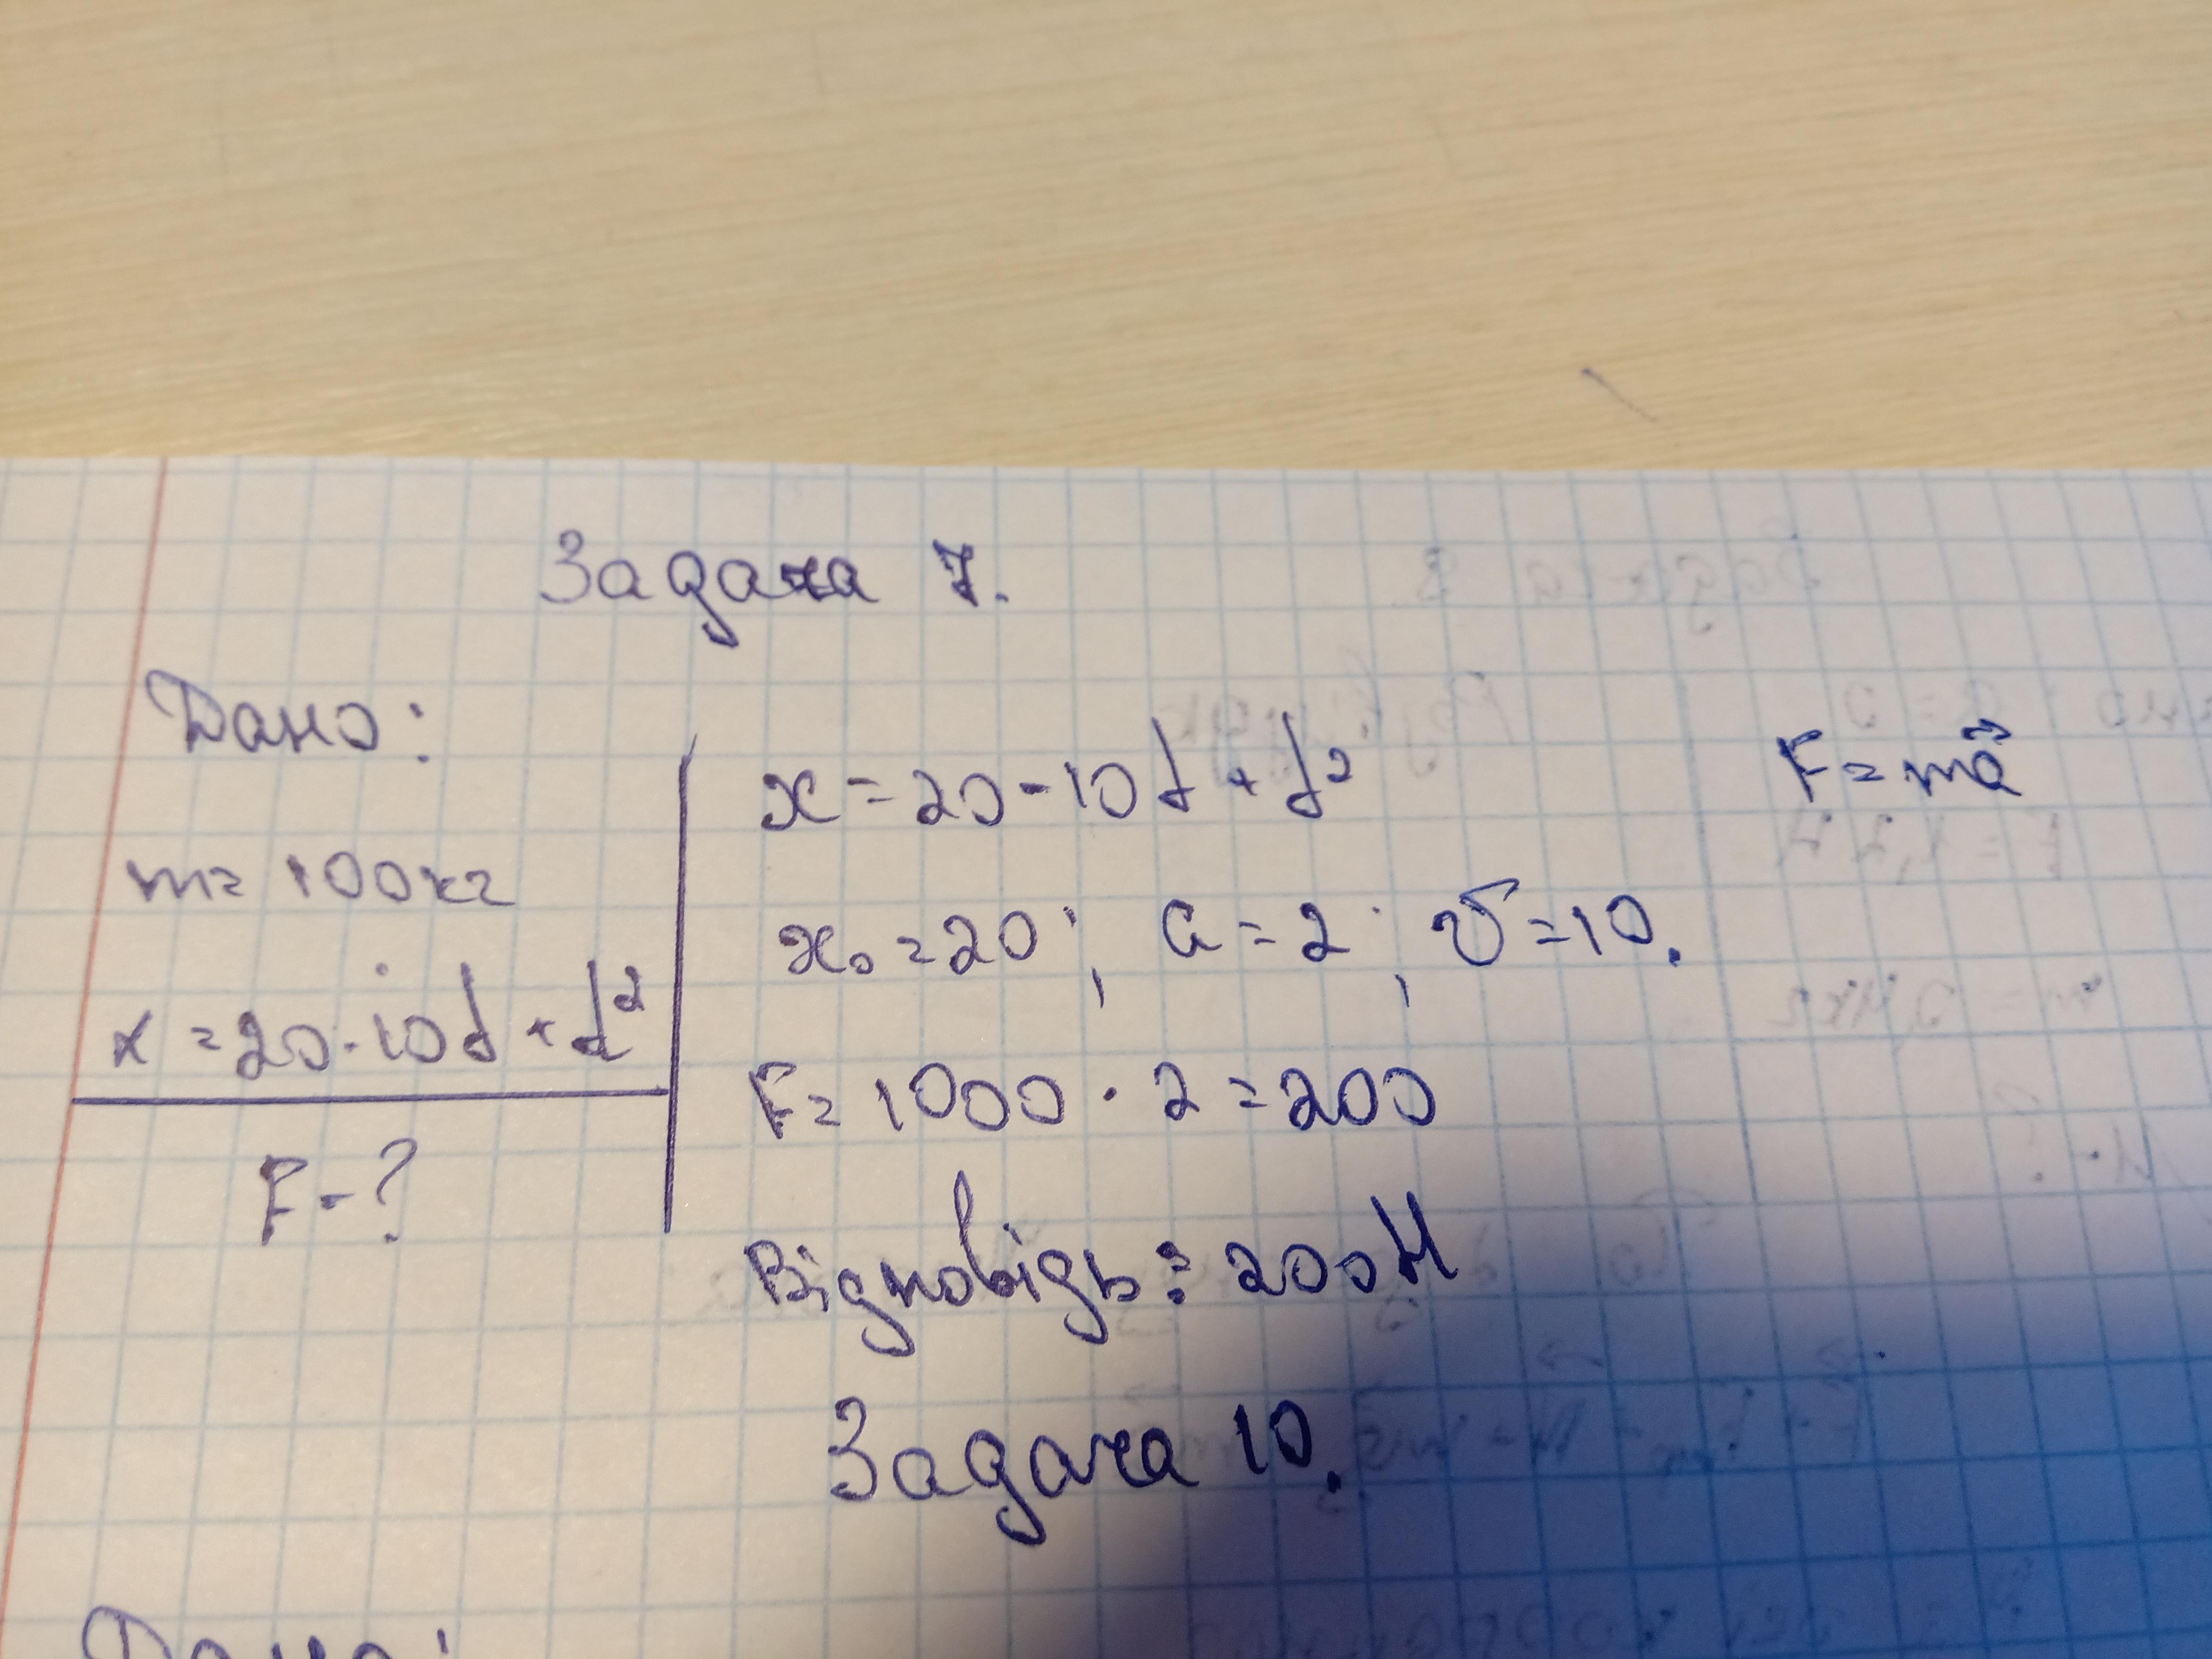 Задача 7.
Дано:
m = 100кг
x = 20 - 10t + t²
F - ?
x = 20 - 10t + t²
F = ma⃗
x₀ = 20; a = 2; v = 10.
F = 1000 · 2 = 200
Відповідь: 200Н
Задача 10.
Дано: